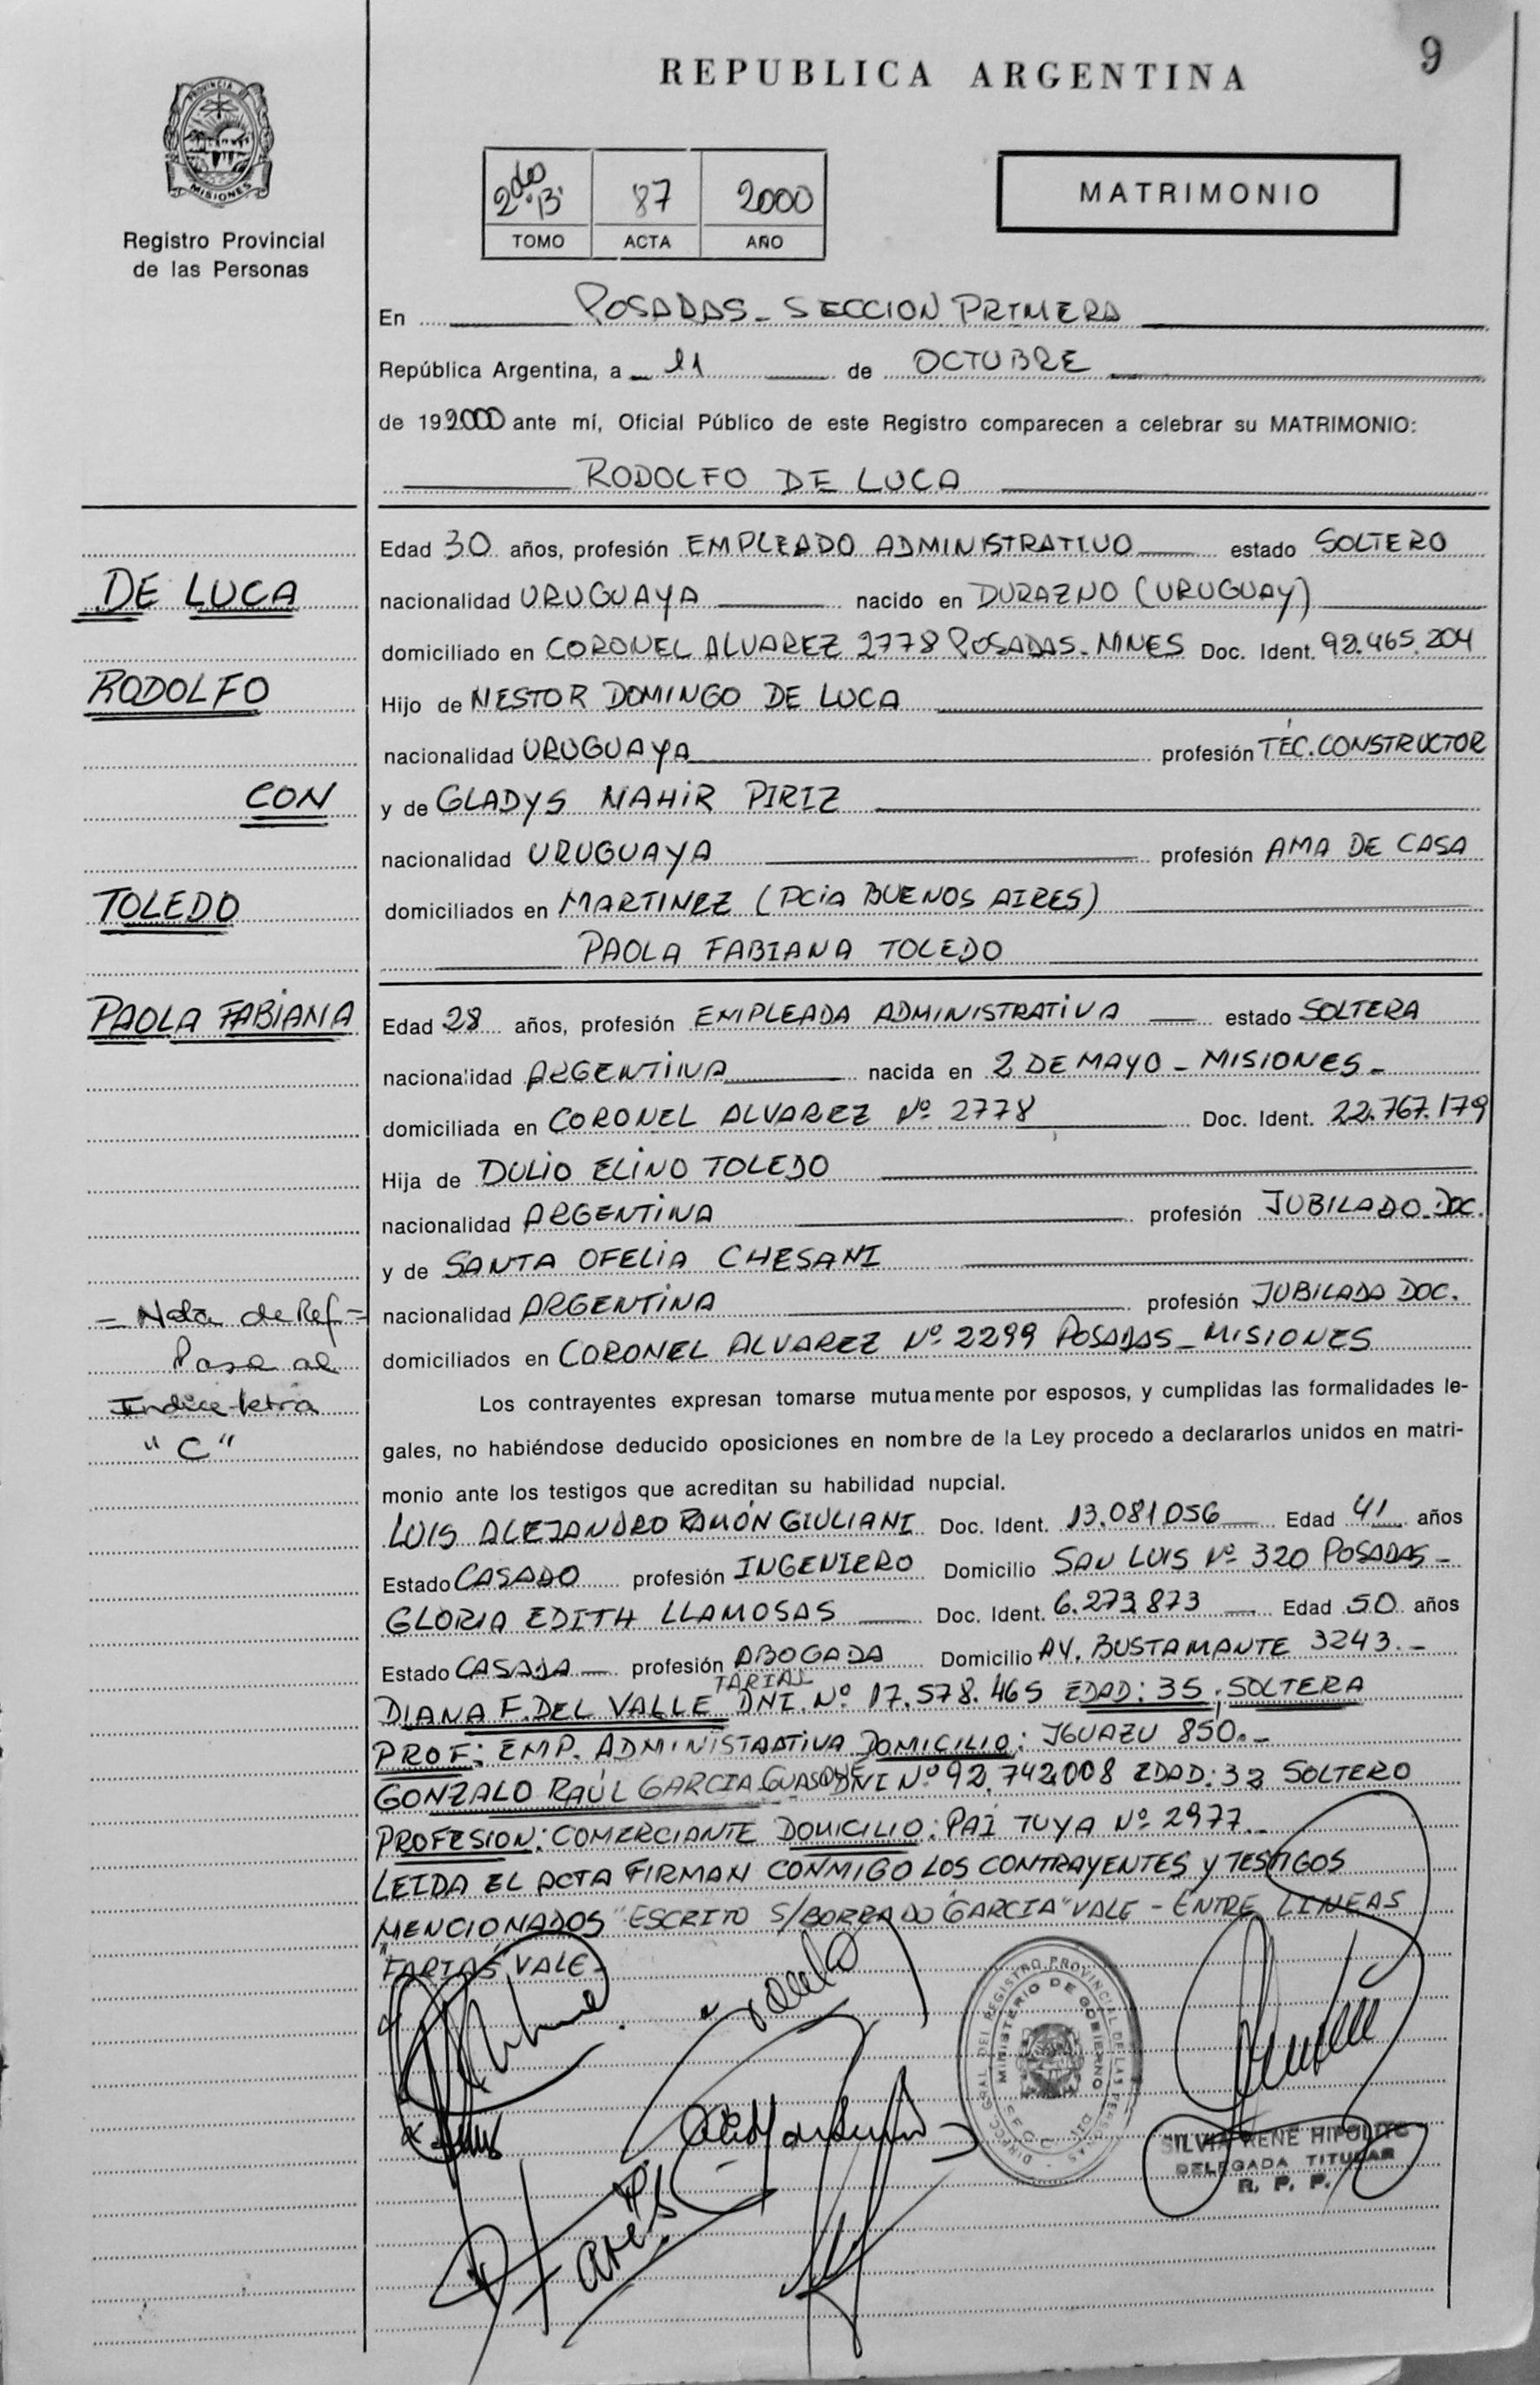 9
REPUBLICA ARGENTINA
PROVINCIA DE
MISIONES
Registro Provincial
de las Personas
2do "B" 87 2000
TOMO ACTA AÑO
MATRIMONIO
En POSADAS - SECCION PRIMERA
República Argentina, a 11 de OCTUBRE
de 192000 ante mí, Oficial Público de este Registro comparecen a celebrar su MATRIMONIO:
RODOLFO DE LUCA
Edad 30 años, profesión EMPLEADO ADMINISTRATIVO estado SOLTERO
DE LUCA
nacionalidad URUGUAYA nacido en DURAZNO (URUGUAY)
domiciliado en CORONEL ALVAREZ 2778 POSADAS - MNES Doc. Ident. 92.465.204
RODOLFO
Hijo de NESTOR DOMINGO DE LUCA
nacionalidad URUGUAYA profesión TEC. CONSTRUCTOR
CON
y de GLADYS MAHIR PIRIZ
nacionalidad URUGUAYA profesión AMA DE CASA
TOLEDO
domiciliados en MARTINEZ (PCIA BUENOS AIRES)
PAOLA FABIANA TOLEDO
PAOLA FABIANA
Edad 28 años, profesión EMPLEADA ADMINISTRATIVA estado SOLTERA
nacionalidad ARGENTINA nacida en 2 DE MAYO - MISIONES -
domiciliada en CORONEL ALVAREZ Nº 2778 Doc. Ident. 22.767.179
Hija de DULIO ELINO TOLEDO
nacionalidad ARGENTINA profesión JUBILADO DOC.
y de SANTA OFELIA CHESANI
= Nota de Ref =
nacionalidad ARGENTINA profesión JUBILADA DOC.
Pasa al
domiciliados en CORONEL ALVAREZ Nº 2299 POSADAS - MISIONES
Indice letra
"C"
Los contrayentes expresan tomarse mutuamente por esposos, y cumplidas las formalidades le-
gales, no habiéndose deducido oposiciones en nombre de la Ley procedo a declararlos unidos en matri-
monio ante los testigos que acreditan su habilidad nupcial.
LUIS ALEJANDRO RAMÓN GIULIANI Doc. Ident. 13.081.056 Edad 41 años
Estado CASADO profesión INGENIERO Domicilio SAN LUIS Nº 320 POSADAS -
GLORIA EDITH LLAMOSAS Doc. Ident. 6.273.873 Edad 50 años
Estado CASADA profesión ABOGADA Domicilio AV. BUSTAMANTE 3243.-
FARIAS
DIANA F. DEL VALLE DNI. Nº 17.578.465 EDAD: 35; SOLTERA
PROF: EMP. ADMINISTRATIVA DOMICILIO: IGUAZU 850.-
GONZALO RAÚL GARCIA GUASQUE DNI Nº 92.742.008 EDAD: 32 SOLTERO
PROFESION: COMERCIANTE DOMICILIO: PAÍ TUYA Nº 2977.-
LEIDA EL ACTA FIRMAN CONMIGO LOS CONTRAYENTES Y TESTIGOS
MENCIONADOS "ESCRITO S/BORRADO "GARCIA" VALE - ENTRE LINEAS
"FARIAS" VALE -
DIRECC. GRAL. DEL REGISTRO PROVINCIAL DE LAS PERSONAS
MINISTERIO DE GOBIERNO
SILVIA RENE HIPOLITO
DELEGADA TITULAR
R. P. P.